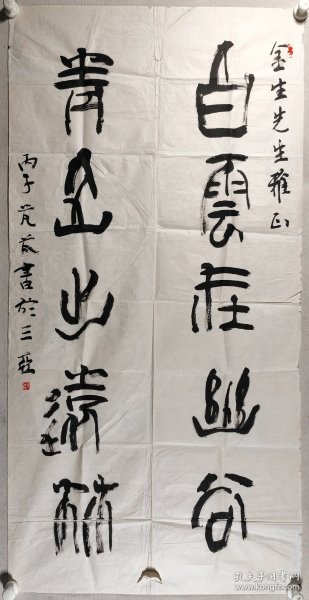 金生先生雅正
白雲在幽谷
青山出遠林
丙子 書於三亞
孔夫子旧书网